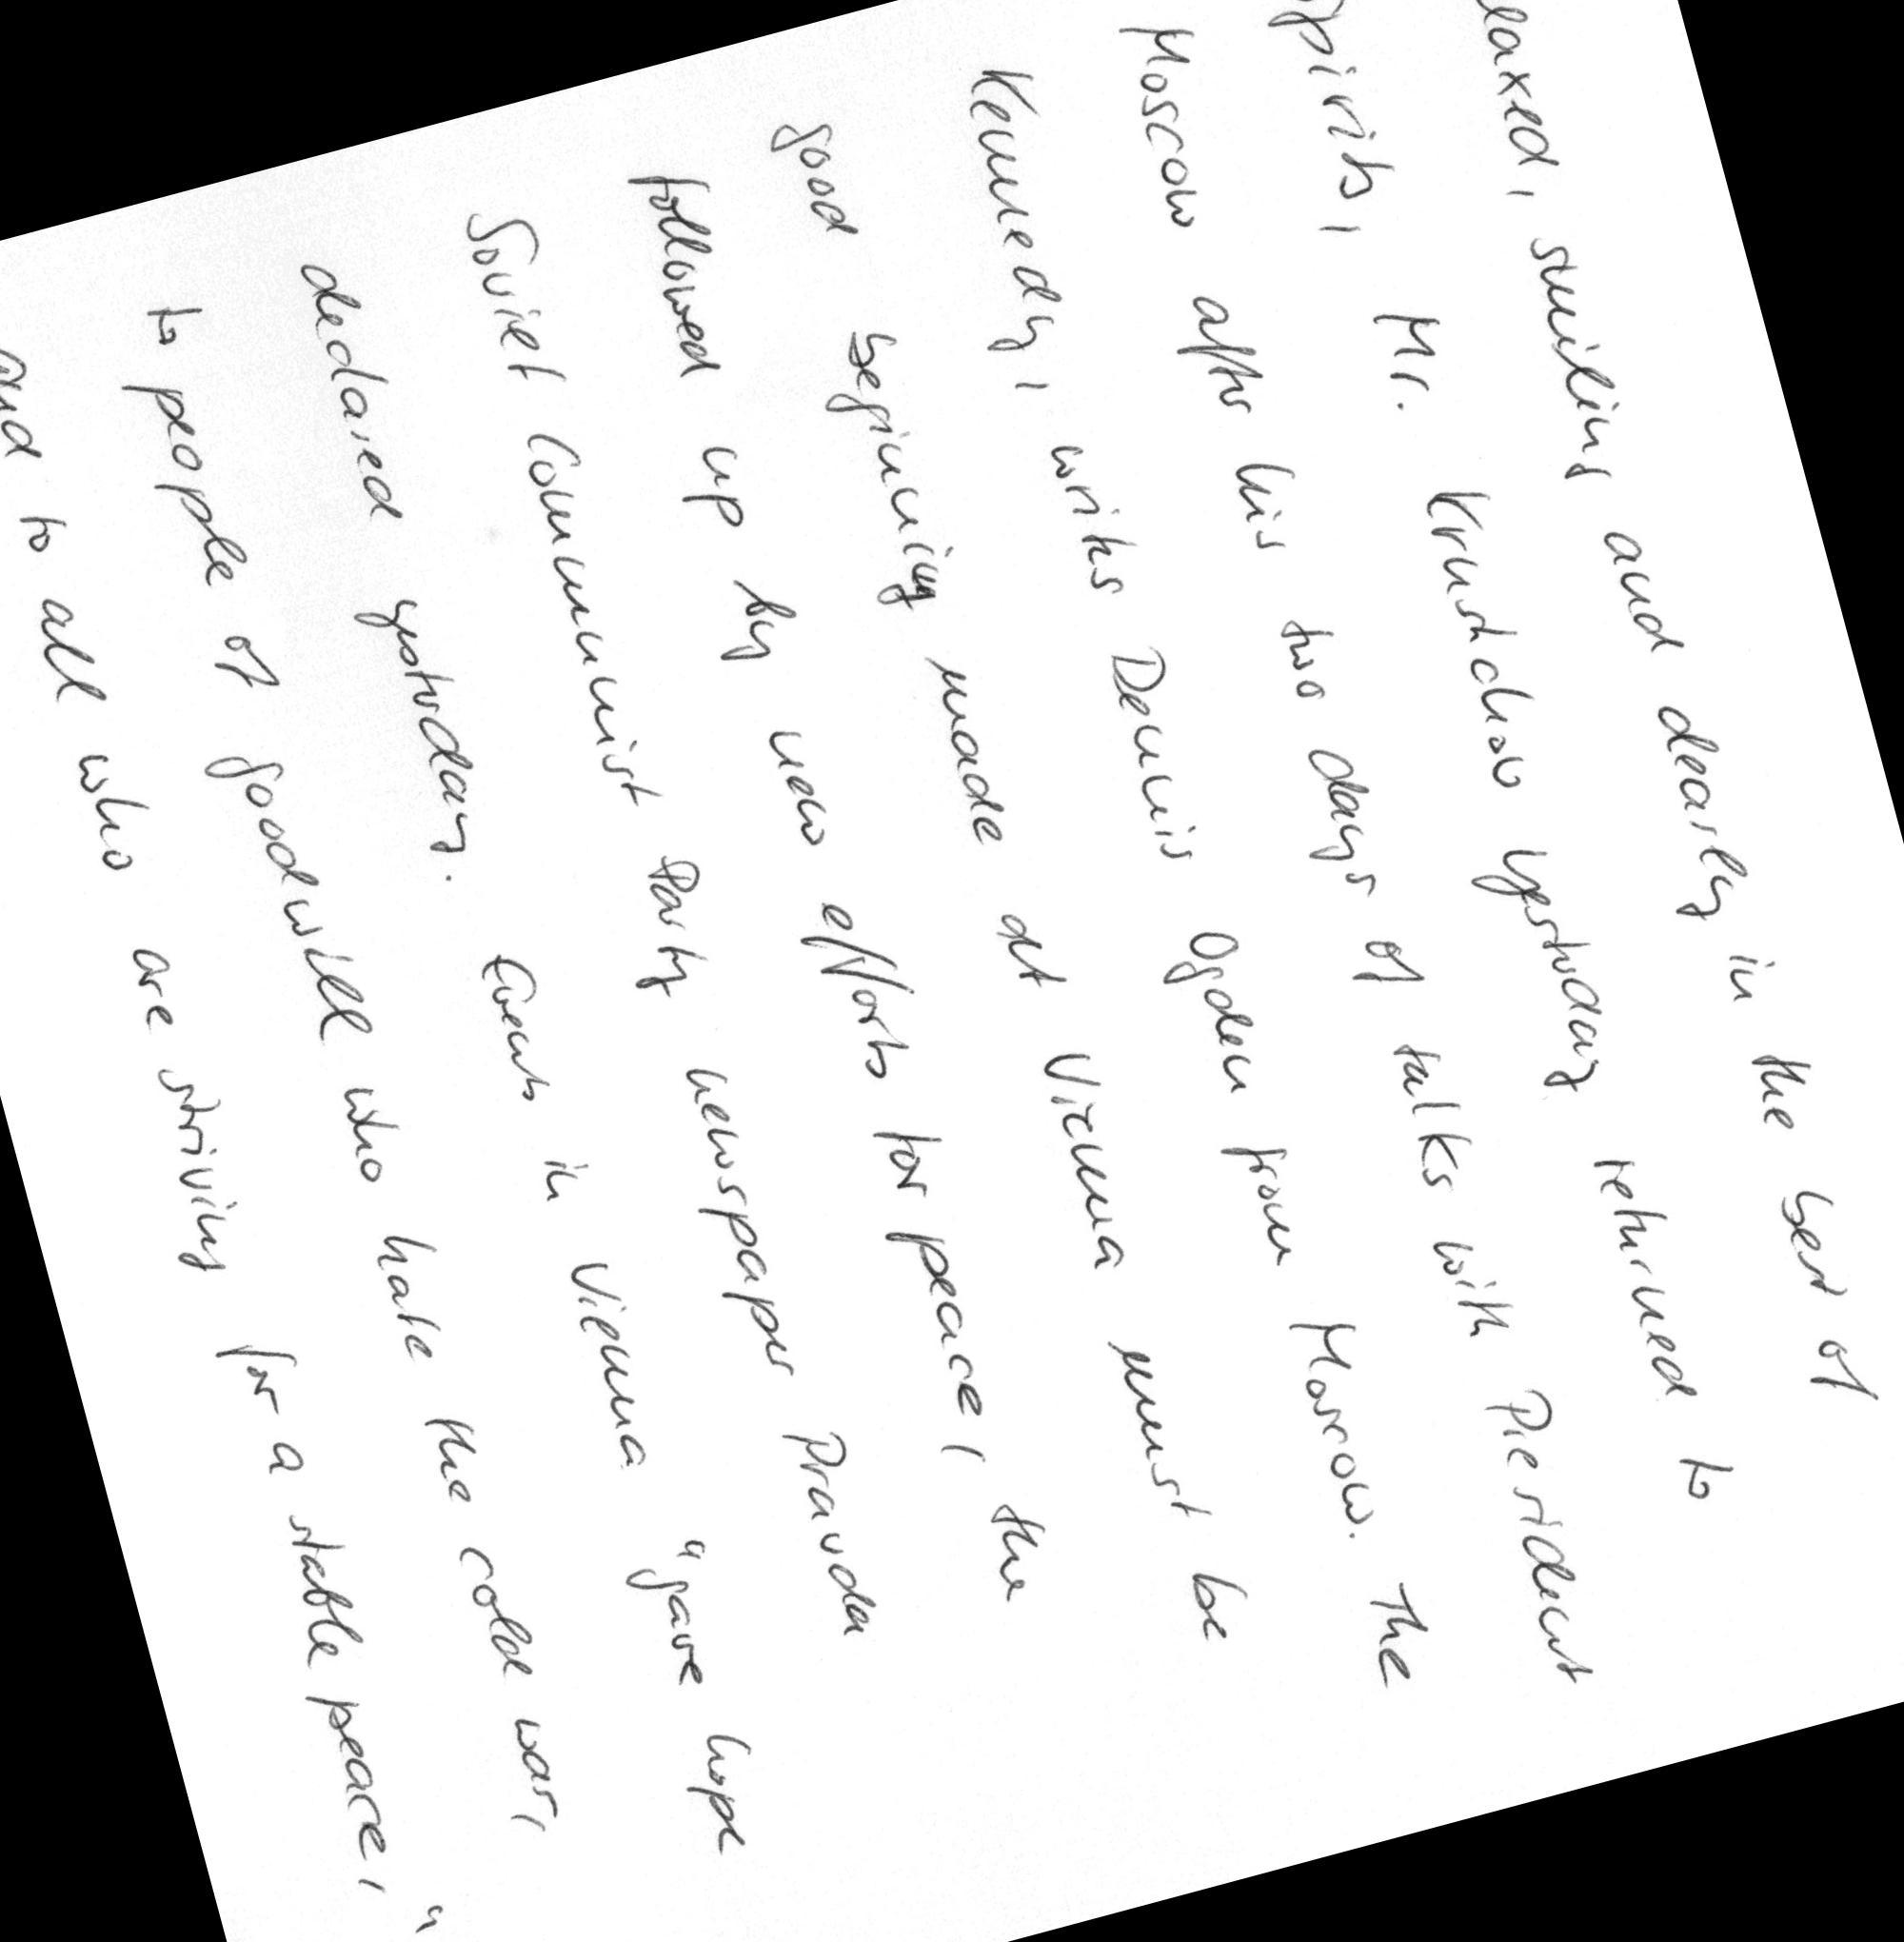 laxed, smiling and clearly in the best of
spirits, Mr. Krushchov yesterday returned to
Moscow after his two days of talks with President
Kennedy, writes Dennis Ogden from Moscow. The
good beginning made at Vienna must be
followed up by new efforts for peace, the
Soviet Communist Party newspaper Pravda
declared yesterday. Events in Vienna "gave hope
to people of goodwill who hate the cold war,
and to all who are striving for a stable peace,"